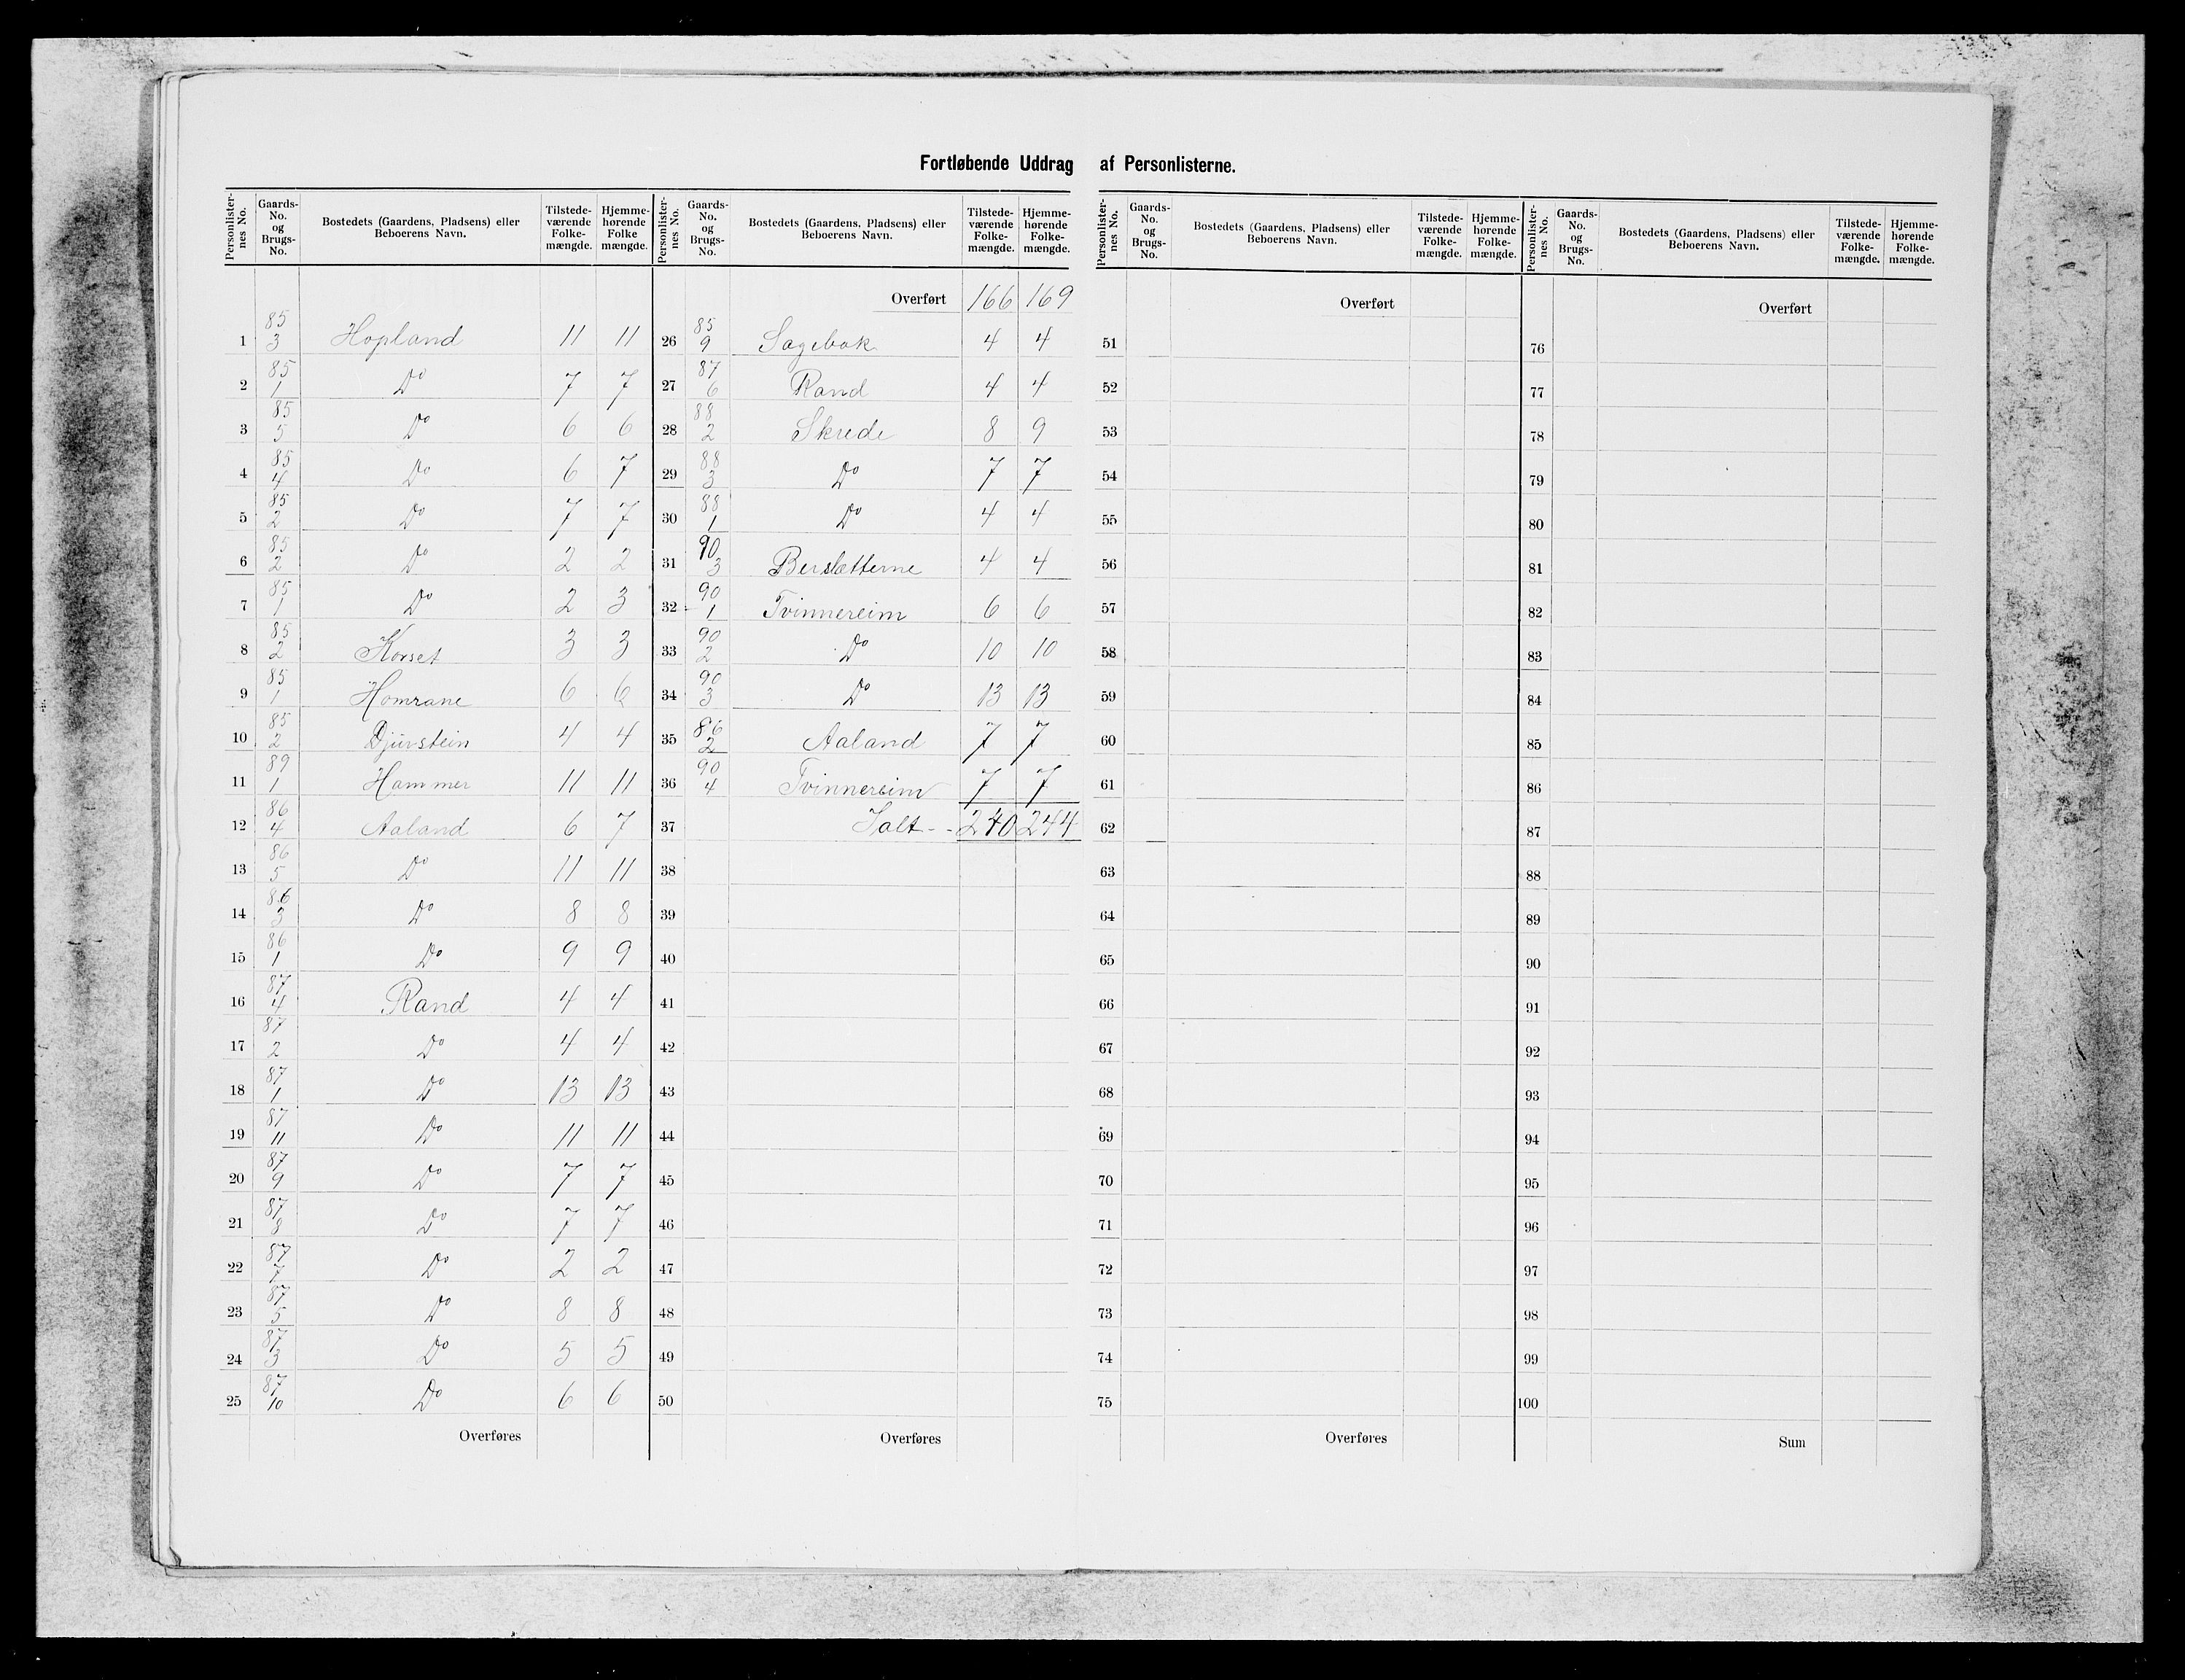 Fortløbende Uddrag af Personlisterne.
Personlister-nes No. Gaards-No. og Brugs-No. Bostedets (Gaardens, Pladsens) eller Beboerens Navn. Tilstede-værende Folke-mængde. Hjemme-hørende Folke mængde.
1 85 3 Hopland 11 11
2 85 1 Do 7 7
3 85 5 Do 6 6
4 85 4 Do 6 7
5 85 2 Do 7 7
6 85 2 Do 2 2
7 85 1 Do 2 3
8 85 2 Korset 3 3
9 85 1 Homrane 6 6
10 85 2 Djurstein 4 4
11 89 1 Hammer 11 11
12 86 4 Aaland 6 7
13 86 5 Do 11 11
14 86 3 Do 8 8
15 86 1 Do 9 9
16 87 4 Rand 4 4
17 87 2 Do 4 4
18 87 1 Do 13 13
19 87 11 Do 11 11
20 87 9 Do 7 7
21 87 8 Do 7 7
22 87 7 Do 2 2
23 87 5 Do 8 8
24 87 3 Do 5 5
25 87 10 Do 6 6
Overføres
Personlister-nes No. Gaards-No. og Brugs-No. Bostedets (Gaardens, Pladsens) eller Beboerens Navn. Tilstede-værende Folke-mængde. Hjemme-hørende Folke-mængde.
Overført 166 169
26 85 9 Sagebak 4 4
27 87 6 Rand 4 4
28 88 2 Skrede 8 9
29 88 3 Do 7 7
30 88 1 Do 4 4
31 90 3 Berslætterne 4 4
32 90 1 Tvinnereim 6 6
33 90 2 Do 10 10
34 90 3 Do 13 13
35 86 2 Aaland 7 7
36 90 4 Tvinnereim 7 7
37 Ialt - - 240 244
38
39
40
41
42
43
44
45
46
47
48
49
50
Overføres
Personlister-nes No. Gaards-No. og Brugs-No. Bostedets (Gaardens, Pladsens) eller Beboerens Navn. Tilstede-værende Folke-mængde. Hjemme-hørende Folke-mængde.
Overført
51
52
53
54
55
56
57
58
59
60
61
62
63
64
65
66
67
68
69
70
71
72
73
74
75
Overføres
Personlister-nes No. Gaards-No. og Brugs-No. Bostedets (Gaardens, Pladsens) eller Beboerens Navn. Tilstede-værende Folke-mængde. Hjemme-hørende Folke-mængde.
Overført
76
77
78
79
80
81
82
83
84
85
86
87
88
89
90
91
92
93
94
95
96
97
98
99
100
Sum